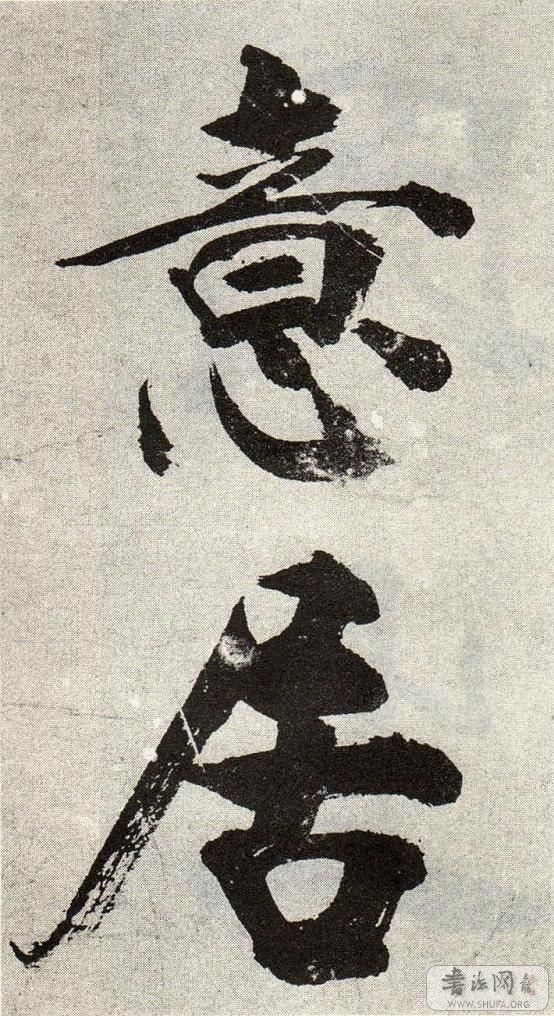 意居
書法网
WWW.SHUFA.ORG